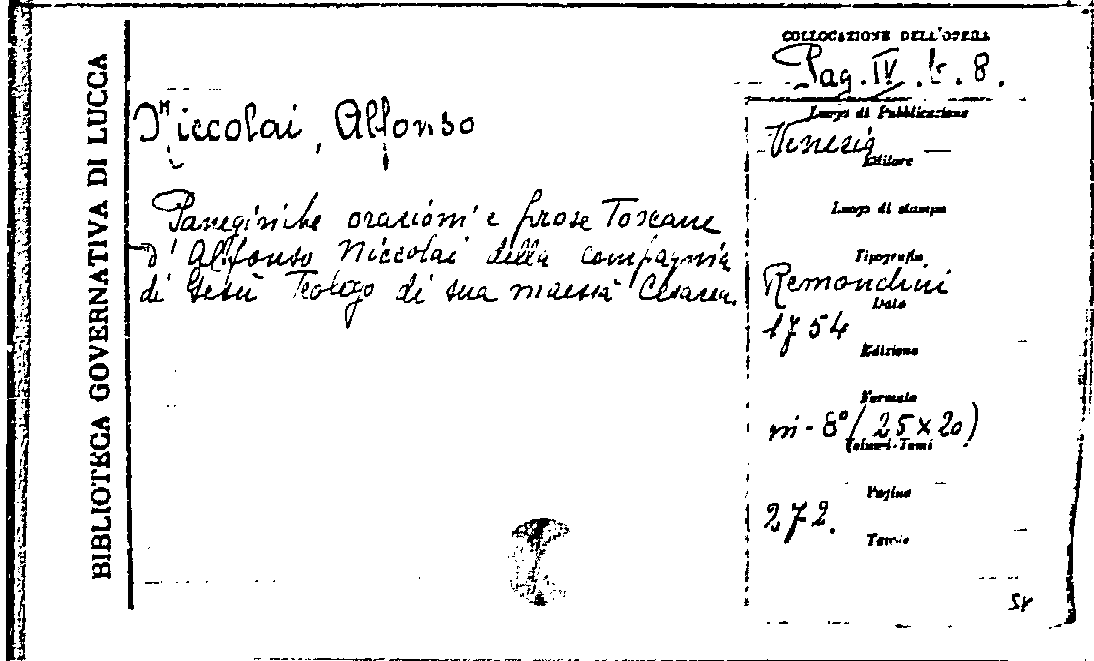 BIBLIOTECA GOVERNATIVA DI LUCCA
COLLOCAZIONE DELL'OPERA
Pag. IV. b. 8.
Niccolai, Alfonso
Panegiriche orazioni e prose Toscane
d'Alfonso Niccolai della compagnia
di Gesù Teologo di sua maestà Cesarea.
Luogo di Pubblicazione
Venezia
Editore
Luogo di stampa
Tipografia
Remondini
Data
1754
Edizione
Formato
in-8° (25x20)
Volumi-Tomi
Pagine
272.
Tavole